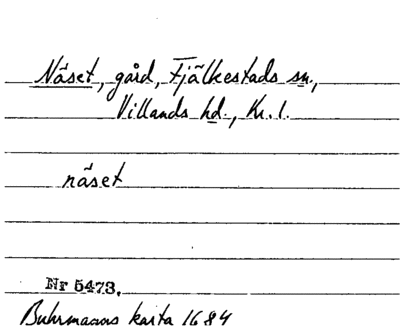 Näset, gård, Fjälkestads sn.,
Villands hd., Kr. l.
näset
Nr 5473.
Buhrmanns karta 1684